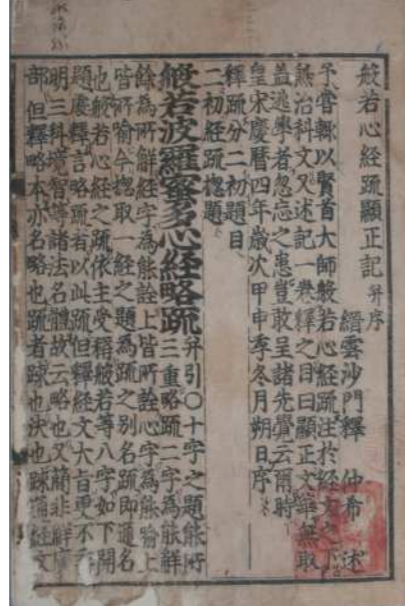 般若心経疏顯正記并序
縉雲沙門釋　仲希　述
予嘗輙以賢首大師般若心経疏注於経文之下
然治科文又述記一卷釋之目曰顯正文筆無取
盖逃學者忽忘之患豈敢呈諸先覺云爾時
皇宋慶暦四年歳次甲申季冬月朔日序
釋疏分二初題目
二初経疏揔題
般若波羅蜜多心経略疏并引〇十字之題能所
三重略疏二字為能解
餘為所解経字為能詮上皆所詮心字為能喻上
皆所喻今揔取一経之題為疏之别名疏即通名
也般若心経之疏依主受稱般若等八字如下開
題廣釋言略疏者以此疏但釋経文大旨更不
明三科境智等諸法名體故云略也又簡非解廣
部但釋略本亦名略也疏者踈也決也踈通経文